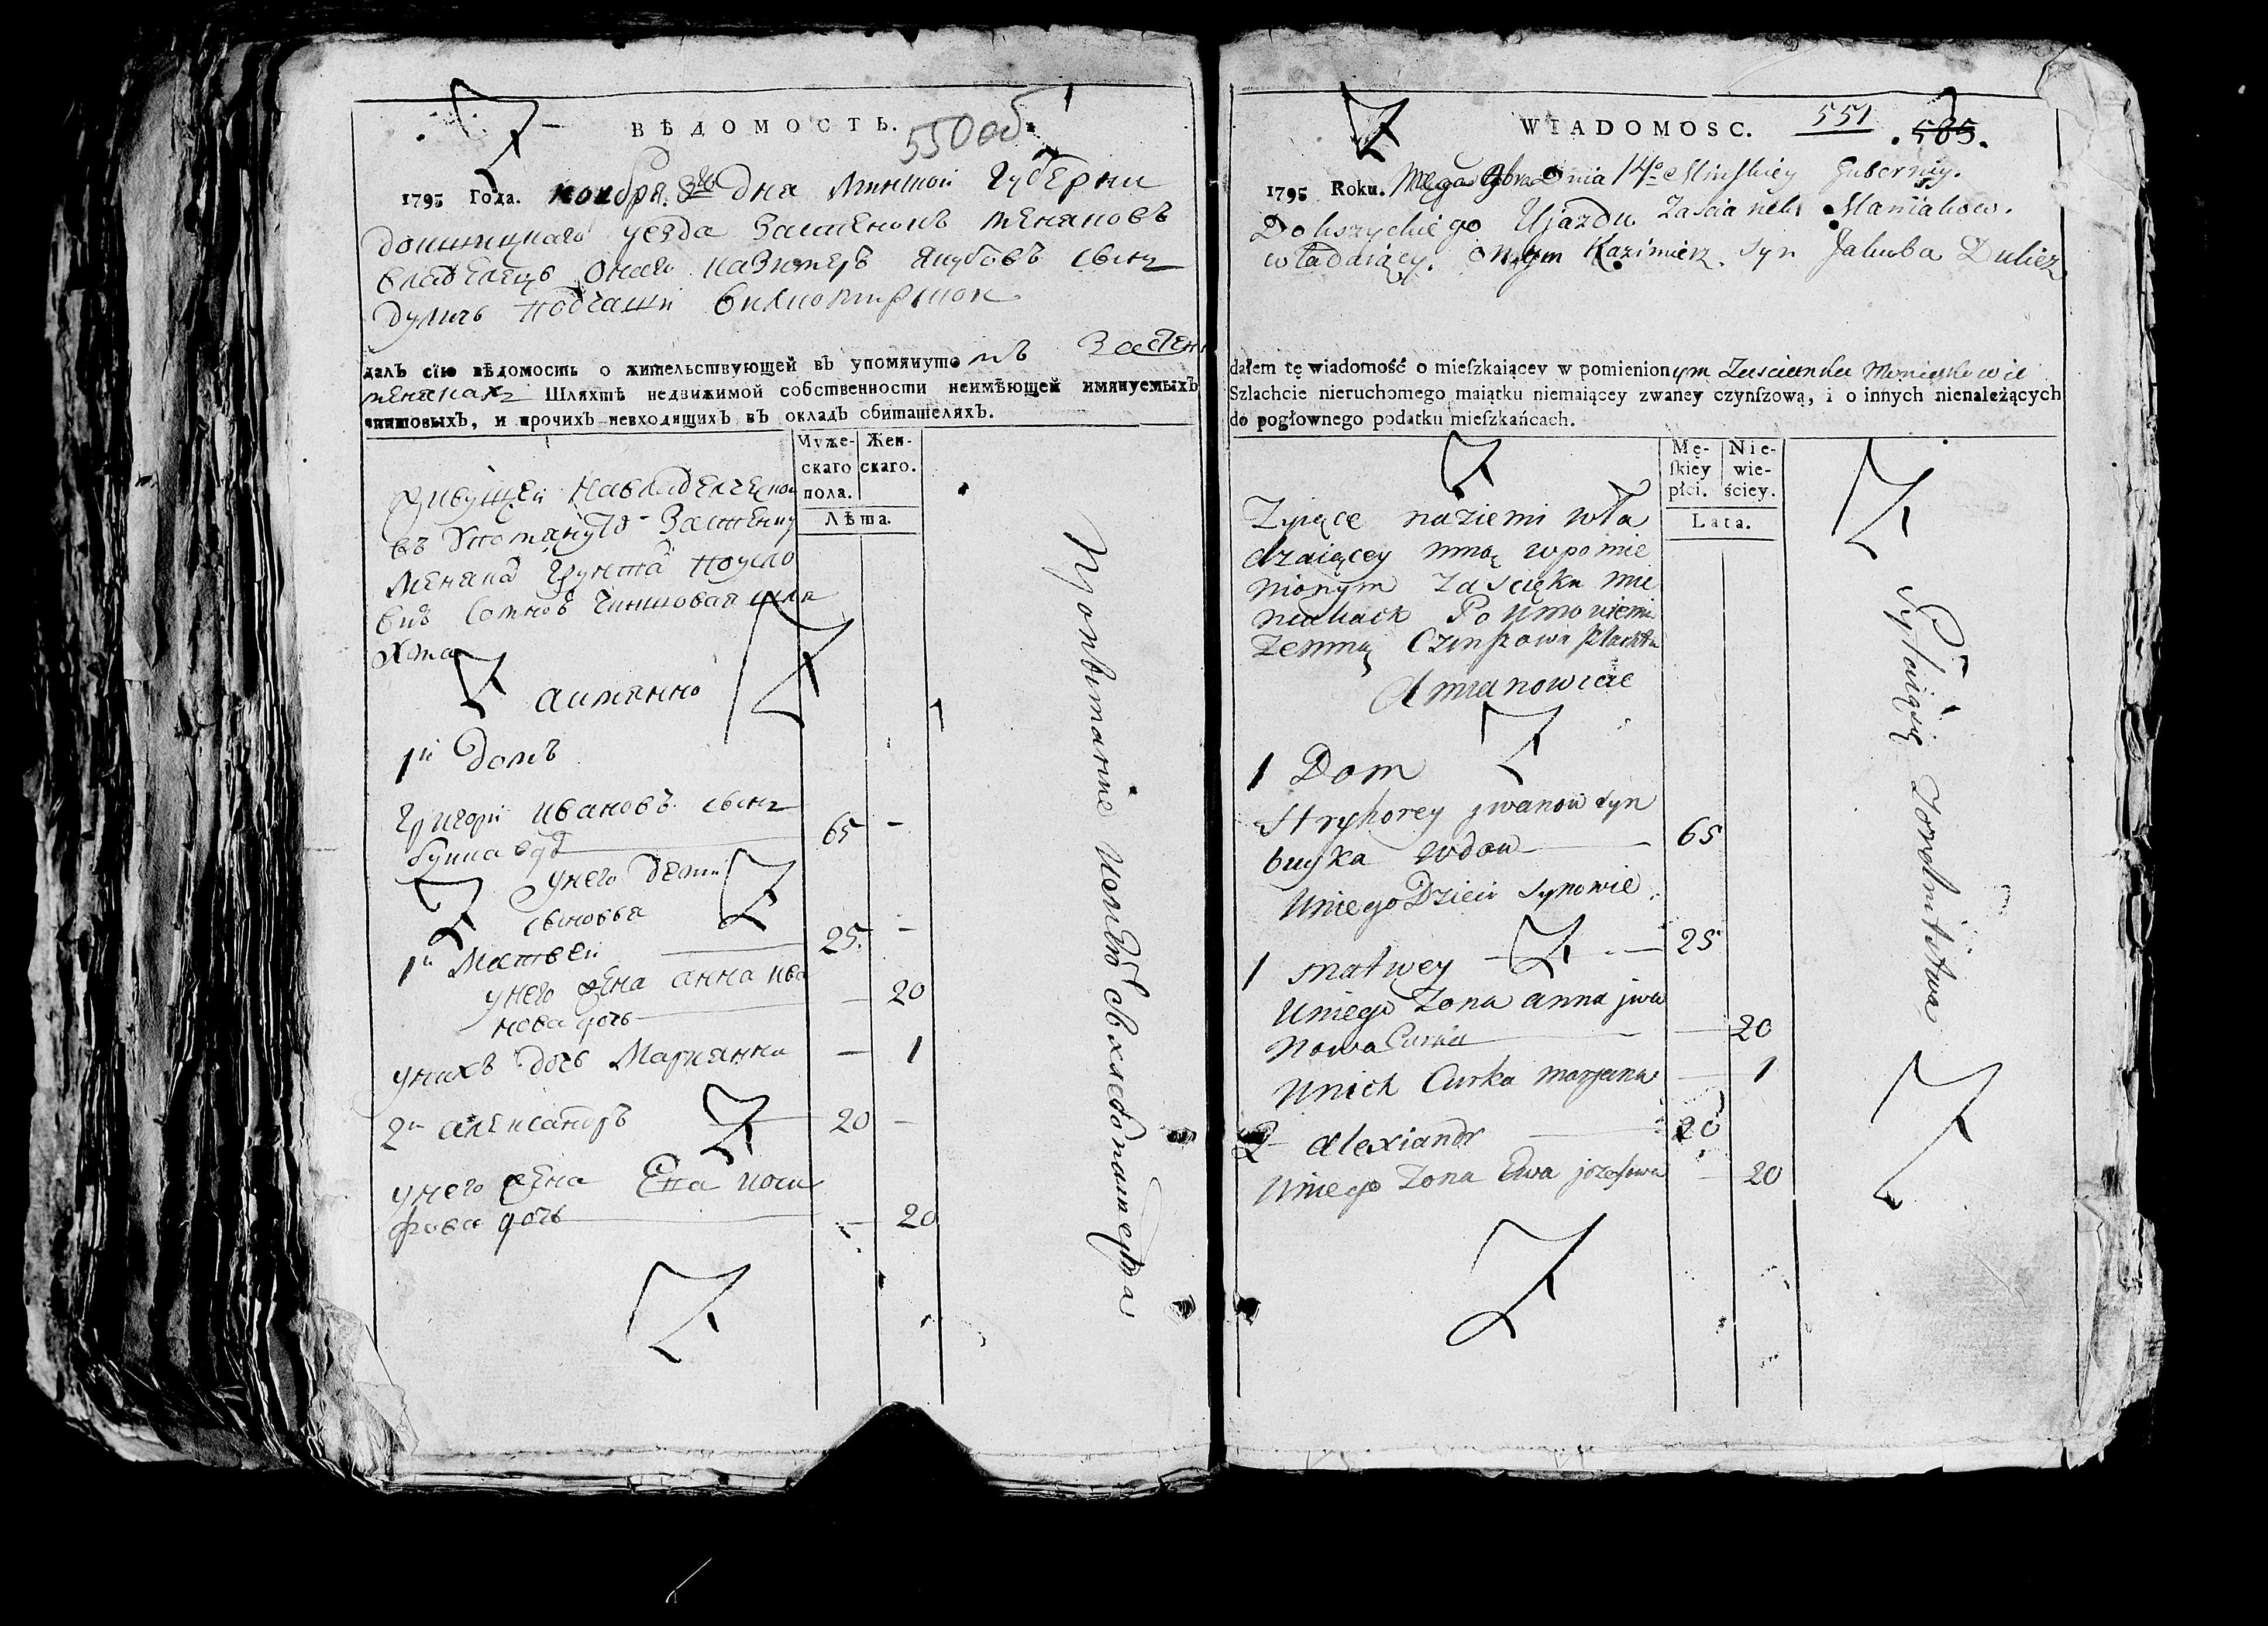 ВѢДОМОСТЬ.
550об
1795 Года. ноября дня Минской Губерни
Докшицкаго уезда Застенокъ Меняковъ
владелецъ Онаго Казимеръ Якубовъ сынъ
Дуличъ подчаши
далъ сїю вѣдомость о жительствующей въ упомянутомъ Застен
Менякахъ Шляхтѣ недвижимой собственности неимѣющей имянуемыхъ
чиншовыхъ, и прочихъ невходящихъ въ окладъ обитателяхъ.
Муже- Жен-
скаго скаго.
пола.
Лѣта.
живущей
въ Упомянуто Застенку
Меняка грунта поусло
вию Сомною чиншовая шля
хта
аимянно
1й домъ
Григори Ивановъ сынъ
65 -
унего дети
сыновья
1й Матвей 25 -
унего жена анна ива
нова дочь — 20
унихъ дочь Марианна — 1
2й александръ 20 —
унего жена Ева иози
фова дочь — 20
Пропитание имѣютъ съ хлебопашества
WIADOMOSC.
551
585.
1795 Roku. dnia 14o Minskiey Guberniy.
Dokszyckiego Ujazdu Zascianek Maniakow.
władaiący. onym Kazimierz. syn Jakuba Dulicz
dałem tę wiadomość o mieſzkaiącey w pomienionym Zascianku
Szlachcie nieruchomego maiątku niemaiącey zwaney czynſzową, i o innych nienależących
do pogłownego podatku mieſzkańcach.
Mę- Nie-
ſkiey wie-
płci. ściey.
Lata.
Zyiące naziemi wła
dzaiącey mną wpomie
nionym Zascięku mie
niakach Po Umowiemi
Zemną Czynszowa szlachta
Amianowicie
1 Dom
Hryhorey jwanow syn
buyka wdow — 65
Uniego Dzieci synowie
1 matwey — 25
Uniego Zona anna jwa
nowa Curka — 20
Unich Curka maryana — 1
2 alexiandr — 20
Uniego Zona Ewa jozefowa — 20
Zyſwiąſię Zorolnictwa